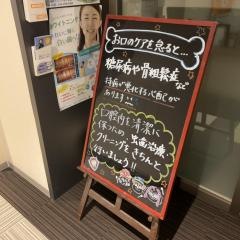 ホワイトニング
お口のケアを怠ると…
糖尿病や骨粗鬆症など
持病が悪化する心配が
あります
口腔内を清潔に
保つため、虫歯治療、
クリーニングをきちんと
行いましょう!!